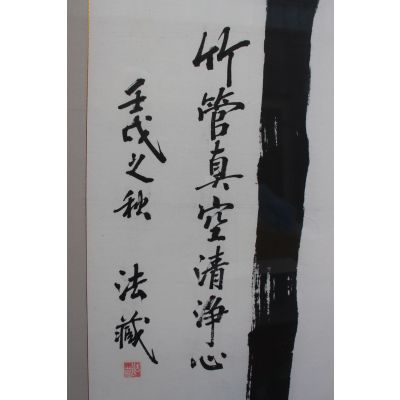 竹管真空清浄心
壬戌之秋 法蔵